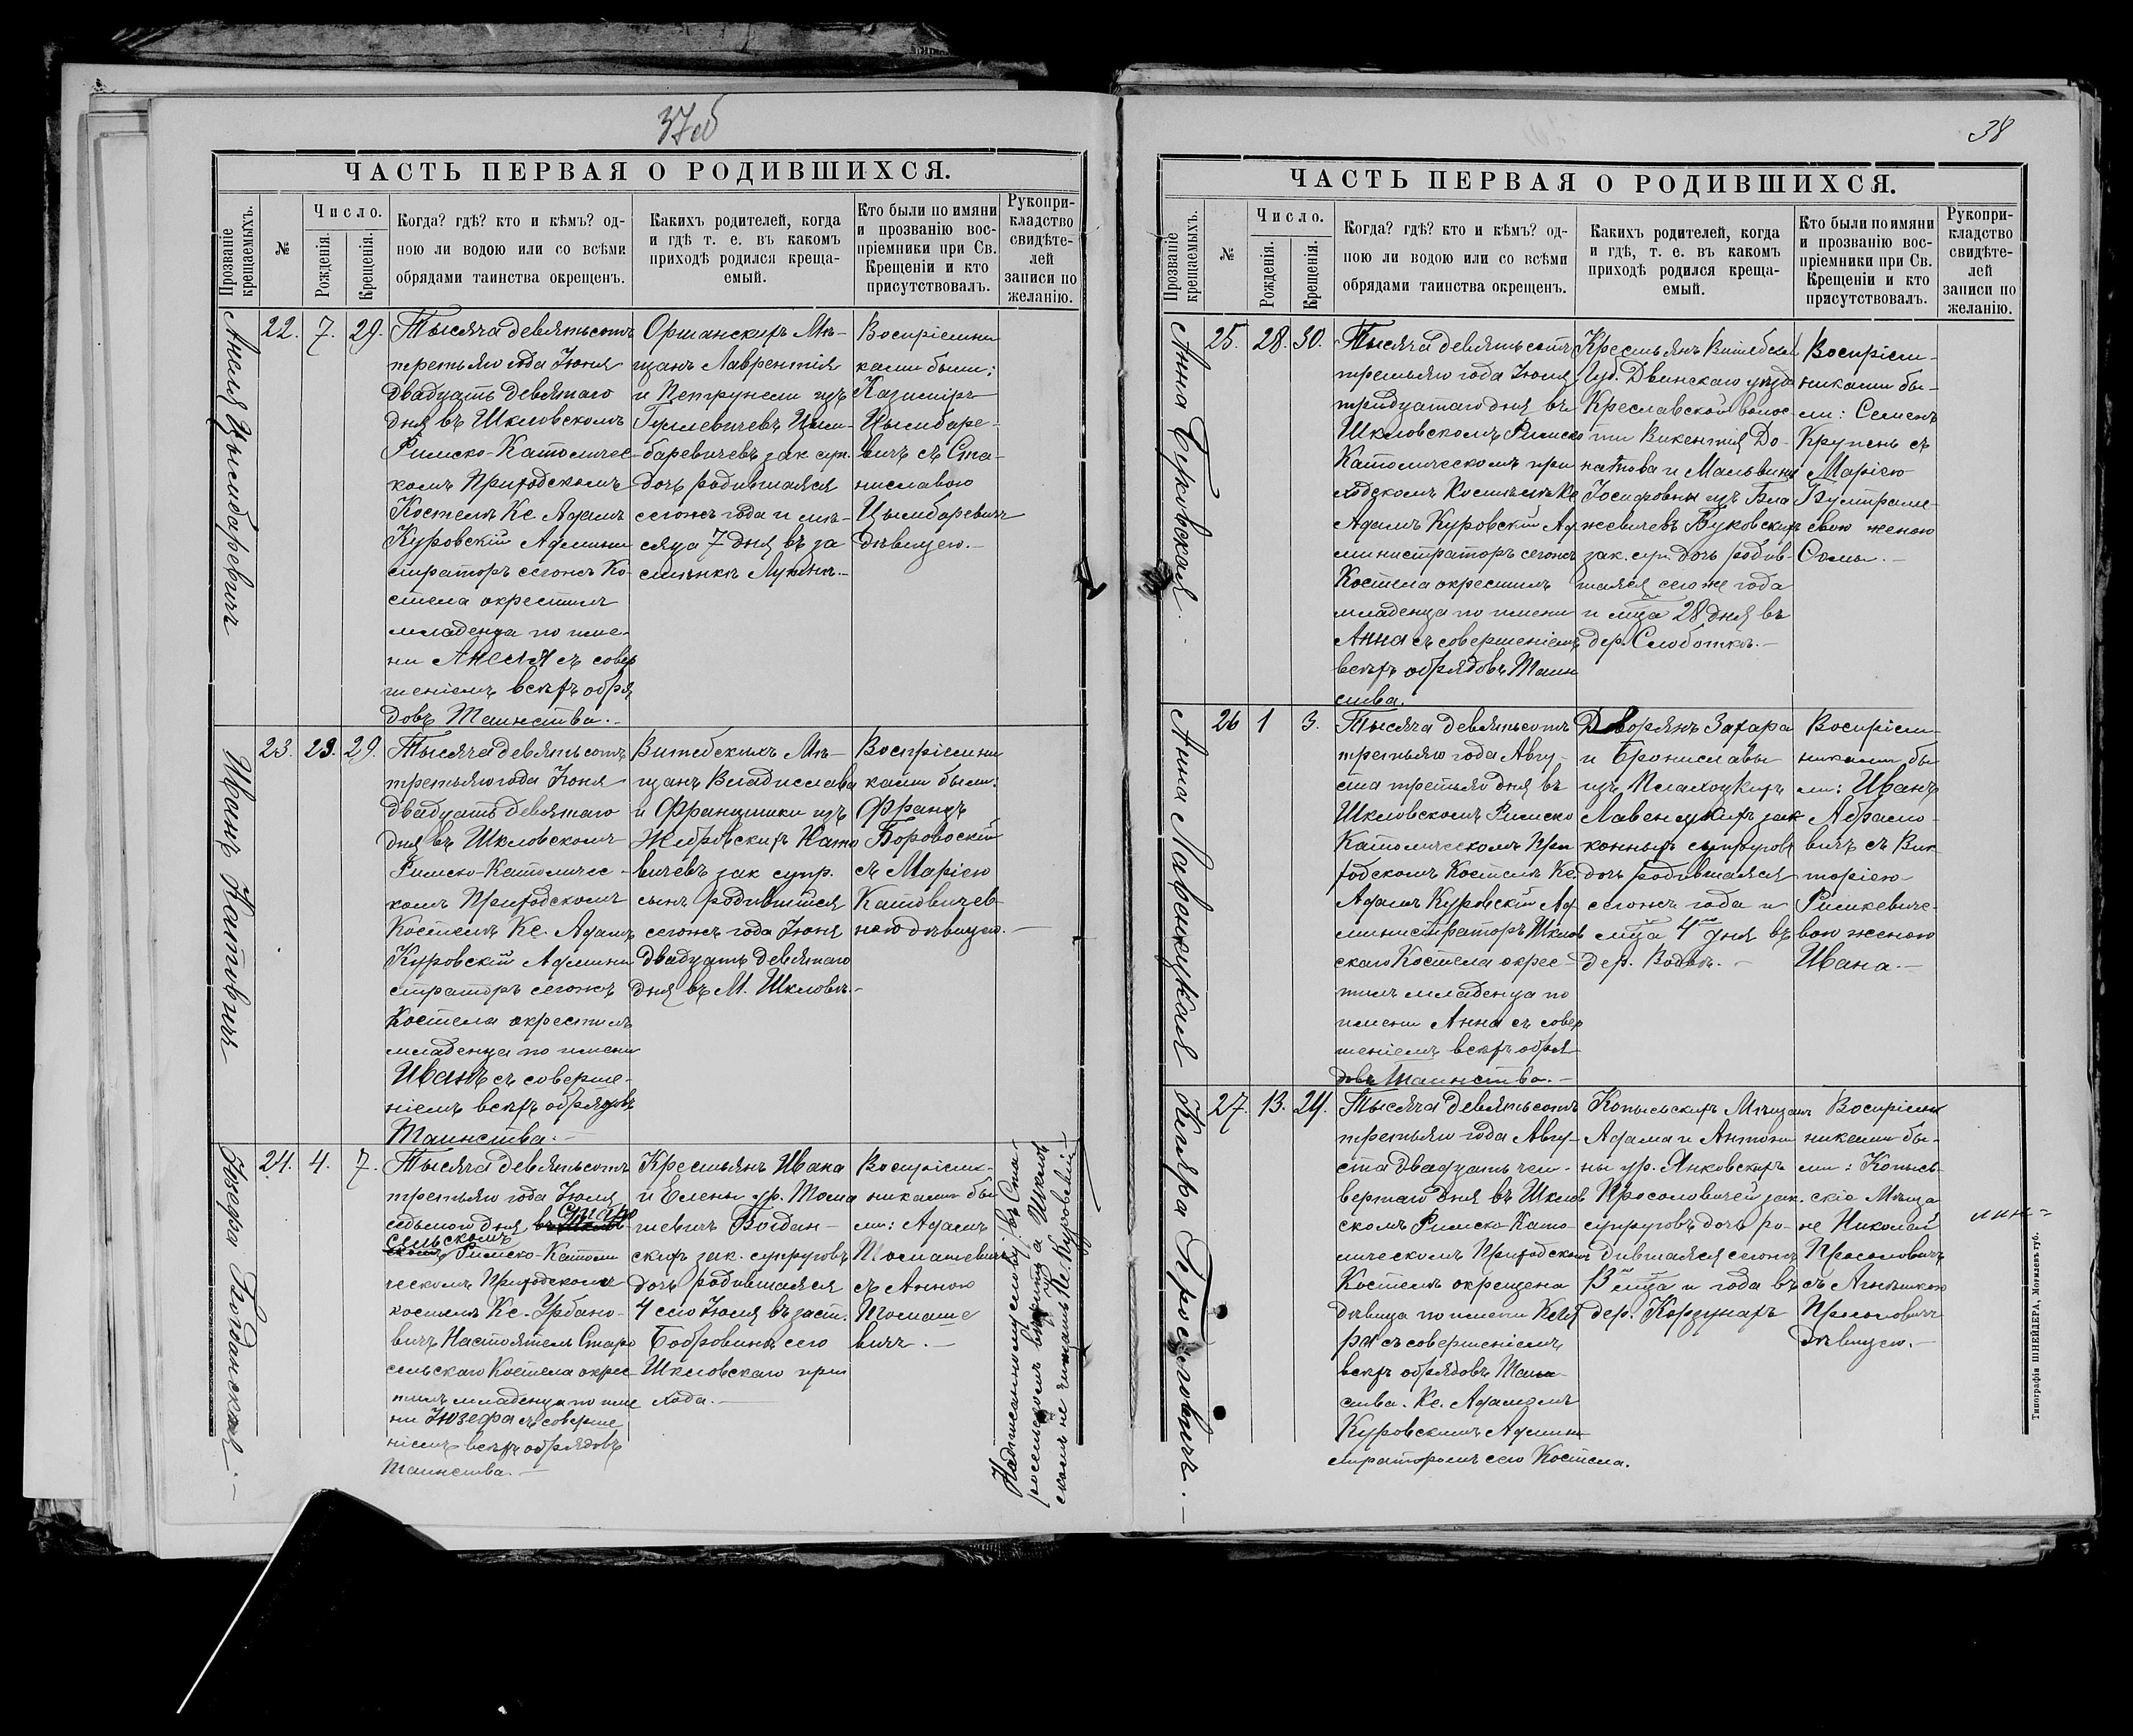 37об
ЧАСТЬ ПЕРВАЯ О РОДИВШИХСЯ.
Прозваніе крещаемыхъ.
№
Число.
Рожденія.
Крещенія.
Когда? гдѣ? кто и кѣмъ? од-
ною ли водою или со всѣми
обрядами таинства окрещенъ.
Какихъ родителей, когда
и гдѣ т. е. въ какомъ
приходѣ родился креща-
емый.
Кто были по имяни
и прозванію вос-
пріемники при Св.
Крещеніи и кто
присутствовалъ.
Рукопри-
кладство
свидѣте-
лей
записи по
желанію.
Анеля Цымбаревичъ
22. 7. 29.
Тысяча девятьсотъ
третьяго года Іюня
двадцать девятаго
дня въ Шкловскомъ
Римско-Католичес-
комъ Приходскомъ
Костелѣ Кс Адамъ
Куровскій Админи
страторъ сегожъ Ко-
стела окрестилъ
младенца по име-
ни Анеля съ совер
шеніемъ всѣхъ обря
довъ Таинства.-
Оршанскихъ Мѣ-
щанъ Лаврентія
и Петрунели изъ
Цым-
баревичевъ зак суп.
дочь родившаяся
сегожъ года и мѣ-
сяца 7 дня въ за
стѣнкѣ
Воспріемни
ками были:
Казиміръ
Цымбаре-
вичъ съ Ста-
ниславою
Цымбаревичъ
дѣвицею.-
Иванъ Катовичъ
23. 29. 29.
Тысяча девятьсотъ
третьяго года Іюня
двадцать девятаго
дня въ Шкловскомъ
Римско-Католичес-
комъ Приходскомъ
Костелѣ Кс. Адамъ
Куровскій Админи
страторъ сегожъ
Костела окрестилъ
младенца по имени
Иванъ съ соверше-
ніемъ всѣхъ обрядовъ
Таинства.-
Витебскихъ Мѣ-
щанъ Владислава
и Францишки изъ
Жебровскихъ Като
вичевъ зак супр.
сынъ родившійся
сегожъ года Іюня
двадцать девятаго
дня въ М. Шкловѣ.-
Воспріемни
ками были:
Францъ
Боровскій
съ Маріею
Катовичев-
ною дѣвицею.-
Юзефа Богданская.-
24. 4. 7.
Тысяча девятьсотъ
третьяго года Іюля
седьмого дня въ Шклов- Старо
скомъ сельскомъ Римско-Католи
ческомъ Приходскомъ
костелѣ Кс. Урбано-
вичъ Настоятель Старо
сельскаго Костела окрес
тилъ младенца по име
ни Юзефа съ соверше
ніемъ всѣхъ обрядовъ
Таинства.-
Крестьянъ Ивана
и Елены ур. Тома
шевичъ Богдан-
скихъ зак. супруговъ
дочь родившаяся
4 сего Іюля въ заст.
сего
Шкловскаго при
хода.-
Воспріем-
никами бы
ли: Адамъ
Томашевичъ
съ Анною
Томаше
вичъ.-
Надписанному слову: въ Ста-
росельскомъ вѣрить а Шклов
скомъ не читать Кс. Куровскій
38
ЧАСТЬ ПЕРВАЯ О РОДИВШИХСЯ.
Прозваніе крещаемыхъ.
№
Число.
Рожденія.
Крещенія.
Когда? гдѣ? кто и кѣмъ? од-
ною ли водою или со всѣми
обрядами таинства окрещенъ.
Какихъ родителей, когда
и гдѣ, т. е. въ какомъ
приходѣ родился креща-
емый.
Кто были по имяни
и прозванію вос-
пріемники при Св.
Крещеніи и кто
присутствовалъ.
Рукопри-
кладство
свидѣте-
лей
записи по
желанію.
Анна Буковская.
25. 28. 30.
Тысяча девятьсотъ
третьяго года Іюля
тридцатаго дня въ
Шкловскомъ Римско
Католическомъ при
ходскомъ Костелѣ Кс
Адамъ Куровскій Ад
министраторъ сегожъ
Костела окрестилъ
младенца по имени
Анна съ совершеніемъ
всѣхъ обрядовъ Таин
ства.
Крестьянъ Витебской
Губ. Двинскаго уѣзда
Креславской волос
ти Викентія До-
натова и Мальвины
Іосифовны изъ Бла
жевичевъ Буковскихъ
зак. суп дочь родив-
шаяся сего же года
и мца 28 дня въ
дер. Слободкѣ.-
Воспріем-
никами бы-
ли: Семенъ
Крупень съ
Маріею
вою женою
Сомы.-
Анна Лавеницкая
26 1 3.
Тысяча девятьсотъ
третьяго года Авгу-
ста третьяго дня въ
Шкловскомъ Римско
Католическомъ При
ходскомъ Костелѣ Кс.
Адамъ Куровскій Ад
министраторъ Шклов
скаго Костела окрес-
тилъ младенца по
имени Анна съ совер
шеніемъ всѣхъ обря
довъ Таинства.-
Дворянъ Захара
и Брониславы
изъ
Лавеницкихъ зак
конныхъ супруговъ
дочь родившаяся
сегожъ года и
мца 1го дня въ
дер. -
Воспріем-
никами бы
ли: Иванъ
Абрамо-
вичъ съ Вик
торіею
Римкевиче-
вою женою
Ивана.-
Кляра Просоловичъ.-
27. 13. 24.
Тысяча девятьсотъ
третьяго года Авгу-
ста двадцать чет-
вертаго дня въ Шклов
скомъ Римско-Като-
лическомъ Приходскомъ
Костелѣ окрещена
дѣвица по имени Кля
ра съ совершеніемъ
всѣхъ обрядовъ Таин-
ства. Кс. Адамомъ
Куровскимъ Админи
страторомъ сего Костела.
Копыльскихъ Мѣщанъ
Адама и Антони
ны ур. Янковскихъ
Просоловичей зак.
супруговъ дочь ро-
дившаяся сегожъ
13 мца и года въ
дер.
Воспріем
никами бы-
ли: Копыль
скіе Мѣща
не Николай
Просоловичъ
съ Агнешкою
Просоловичъ
дѣвицею.-
Типографія ШНЕЙДЕРА, Могилевъ губ.